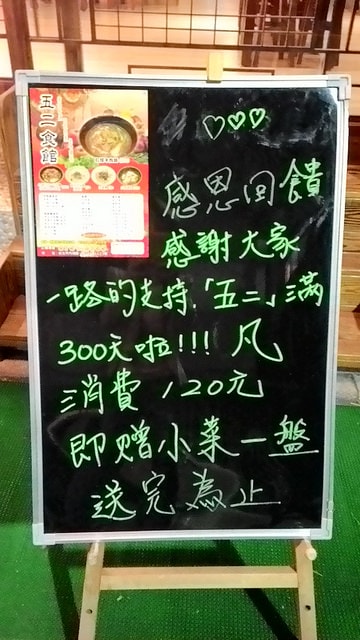 五二食館
♡♡♡
感恩回饋
感謝大家
一路的支持,「五二」滿
300天啦!!!凡
消費120元
即贈小菜一盤
送完為止